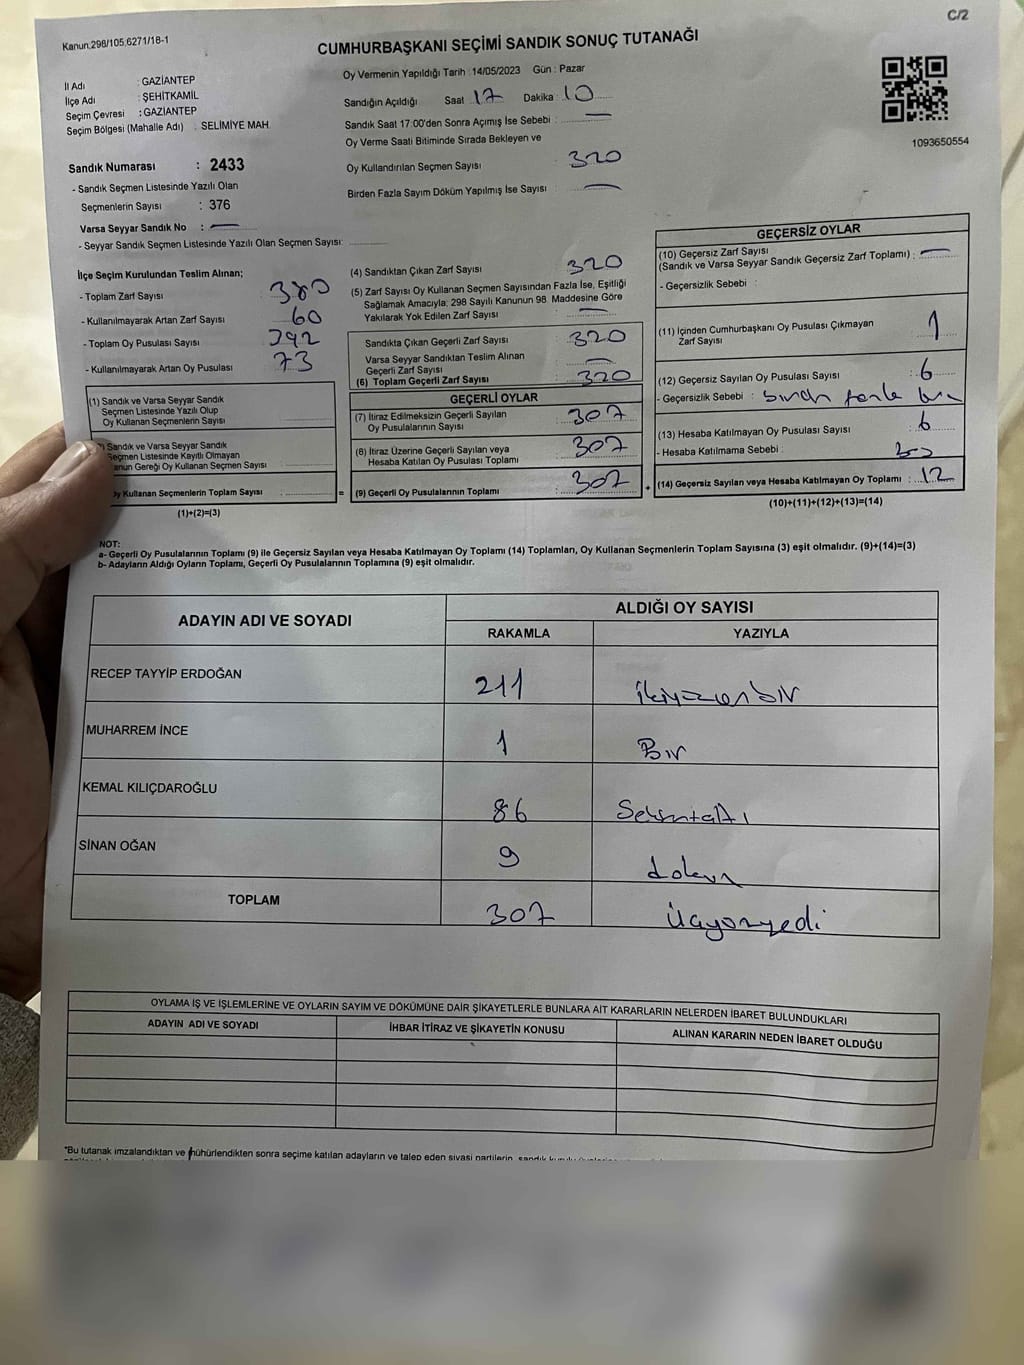 C/2
Kanun.298/105,6271/18-1
CUMHURBAŞKANI SEÇİMİ SANDIK SONUÇ TUTANAĞI
İl Adı : GAZİANTEP
İlçe Adı : ŞEHİTKAMİL
Seçim Çevresi : GAZİANTEP
Seçim Bölgesi (Mahalle Adı) : SELİMİYE MAH.
Sandık Numarası : 2433
- Sandık Seçmen Listesinde Yazılı Olan
Seçmenlerin Sayısı : 376
Varsa Seyyar Sandık No : —
- Seyyar Sandık Seçmen Listesinde Yazılı Olan Seçmen Sayısı:
Oy Vermenin Yapıldığı Tarih : 14/05/2023 Gün : Pazar
Sandığın Açıldığı Saat 17 Dakika : 10
Sandık Saat 17:00'den Sonra Açımış İse Sebebi : —
Oy Verme Saati Bitiminde Sırada Bekleyen ve
Oy Kullandırılan Seçmen Sayısı : 320
Birden Fazla Sayım Döküm Yapılmış İse Sayısı : —
1093650554
İlçe Seçim Kurulundan Teslim Alınan;
- Toplam Zarf Sayısı 380
- Kullanılmayarak Artan Zarf Sayısı 60
- Toplam Oy Pusulası Sayısı 392
- Kullanılmayarak Artan Oy Pusulası 73
(1) Sandık ve Varsa Seyyar Sandık
Seçmen Listesinde Yazılı Olup
Oy Kullanan Seçmenlerin Sayısı
Sandık ve Varsa Seyyar Sandık
Seçmen Listesinde Kayıtlı Olmayan
Kanun Gereği Oy Kullanan Seçmen Sayısı
Oy Kullanan Seçmenlerin Toplam Sayısı : =
(1)+(2)=(3)
(4) Sandıktan Çıkan Zarf Sayısı 320
(5) Zarf Sayısı Oy Kullanan Seçmen Sayısından Fazla İse, Eşitliği
Sağlamak Amacıyla; 298 Sayılı Kanunun 98. Maddesine Göre
Yakılarak Yok Edilen Zarf Sayısı : —
Sandıkta Çıkan Geçerli Zarf Sayısı : 320
Varsa Seyyar Sandıktan Teslim Alınan
Geçerli Zarf Sayısı : —
(6) Toplam Geçerli Zarf Sayısı : 320
GEÇERLİ OYLAR
(7) İtiraz Edilmeksizin Geçerli Sayılan
Oy Pusulalarının Sayısı : 307
(8) İtiraz Üzerine Geçerli Sayılan veya
Hesaba Katılan Oy Pusulası Toplamı : 307
(9) Geçerli Oy Pusulalarının Toplamı : 307 +
GEÇERSİZ OYLAR
(10) Geçersiz Zarf Sayısı
(Sandık ve Varsa Seyyar Sandık Geçersiz Zarf Toplamı) : —
- Geçersizlik Sebebi :
(11) İçinden Cumhurbaşkanı Oy Pusulası Çıkmayan
Zarf Sayısı : 1
(12) Geçersiz Sayılan Oy Pusulası Sayısı : 6
- Geçersizlik Sebebi :
(13) Hesaba Katılmayan Oy Pusulası Sayısı : 6
- Hesaba Katılmama Sebebi :
(14) Geçersiz Sayılan veya Hesaba Katılmayan Oy Toplamı : 12
(10)+(11)+(12)+(13)=(14)
NOT:
a- Geçerli Oy Pusulalarının Toplamı (9) ile Geçersiz Sayılan veya Hesaba Katılmayan Oy Toplamı (14) Toplamları, Oy Kullanan Seçmenlerin Toplam Sayısına (3) eşit olmalıdır. (9)+(14)=(3)
b- Adayların Aldığı Oyların Toplamı, Geçerli Oy Pusulalarının Toplamına (9) eşit olmalıdır.
ADAYIN ADI VE SOYADI
ALDIĞI OY SAYISI
RAKAMLA YAZIYLA
RECEP TAYYİP ERDOĞAN 211
MUHARREM İNCE 1 Bir
KEMAL KILIÇDAROĞLU 86 Seksenaltı
SİNAN OĞAN 9 dokuz
TOPLAM 307 Üçyüzyedi
OYLAMA İŞ VE İŞLEMLERİNE VE OYLARIN SAYIM VE DÖKÜMÜNE DAİR ŞİKAYETLERLE BUNLARA AİT KARARLARIN NELERDEN İBARET BULUNDUKLARI
ADAYIN ADI VE SOYADI İHBAR İTİRAZ VE ŞİKAYETİN KONUSU ALINAN KARARIN NEDEN İBARET OLDUĞU
*Bu tutanak imzalandıktan ve mühürlendikten sonra seçime katılan adayların ve talep eden siyasi partilerin, sandık kurulu